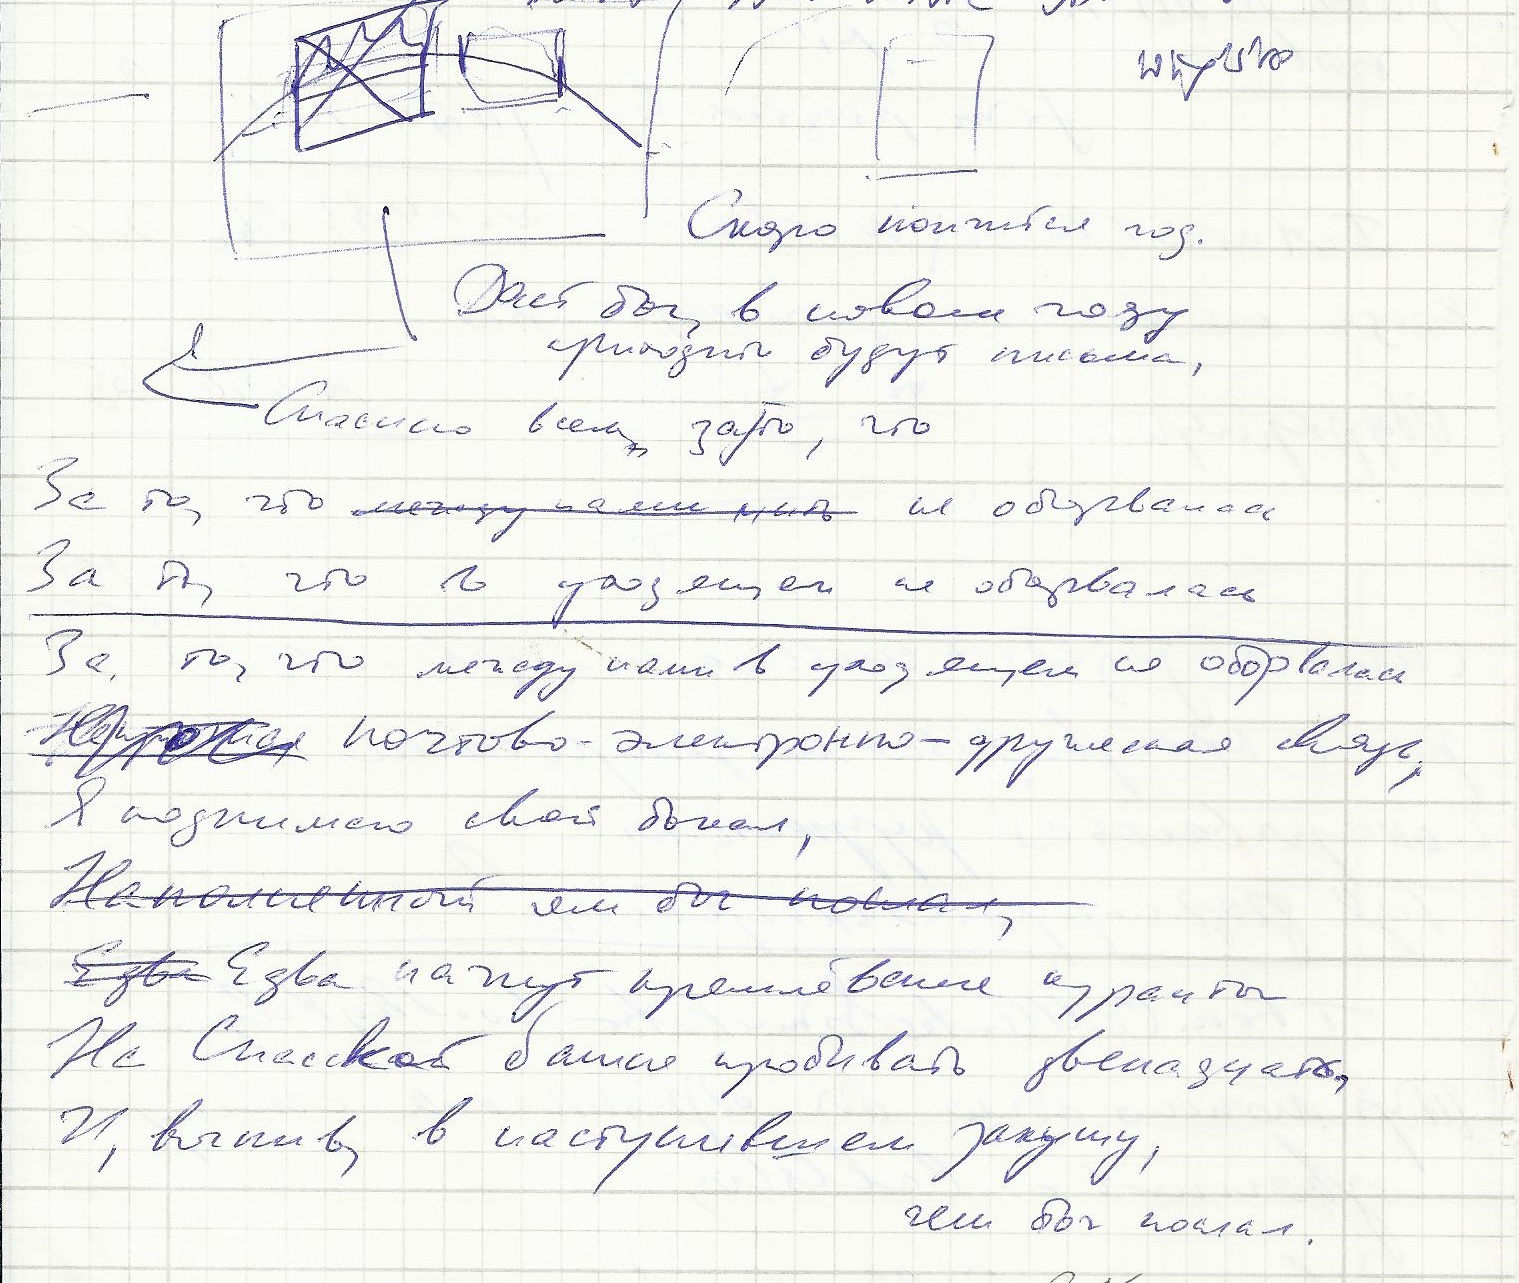 Скоро кончится год.
Даст бог, в новом году
приходить будут письма,
Спасибо всем, за то, что
За то, что между нами нить не оборвалась
За то, что в уходящем не оборвалась
За, то, что между нами в уходящем не оборвалась
почтово-электронно-дружеская связь,
Я поднимаю свой бокал,
Наполненный чем бог послал,
Едва Едва начнут кремлёвские куранты
На Спасской башне пробивать двенадцать,
И, выпив, в наступившем закушу,
чем бог послал.